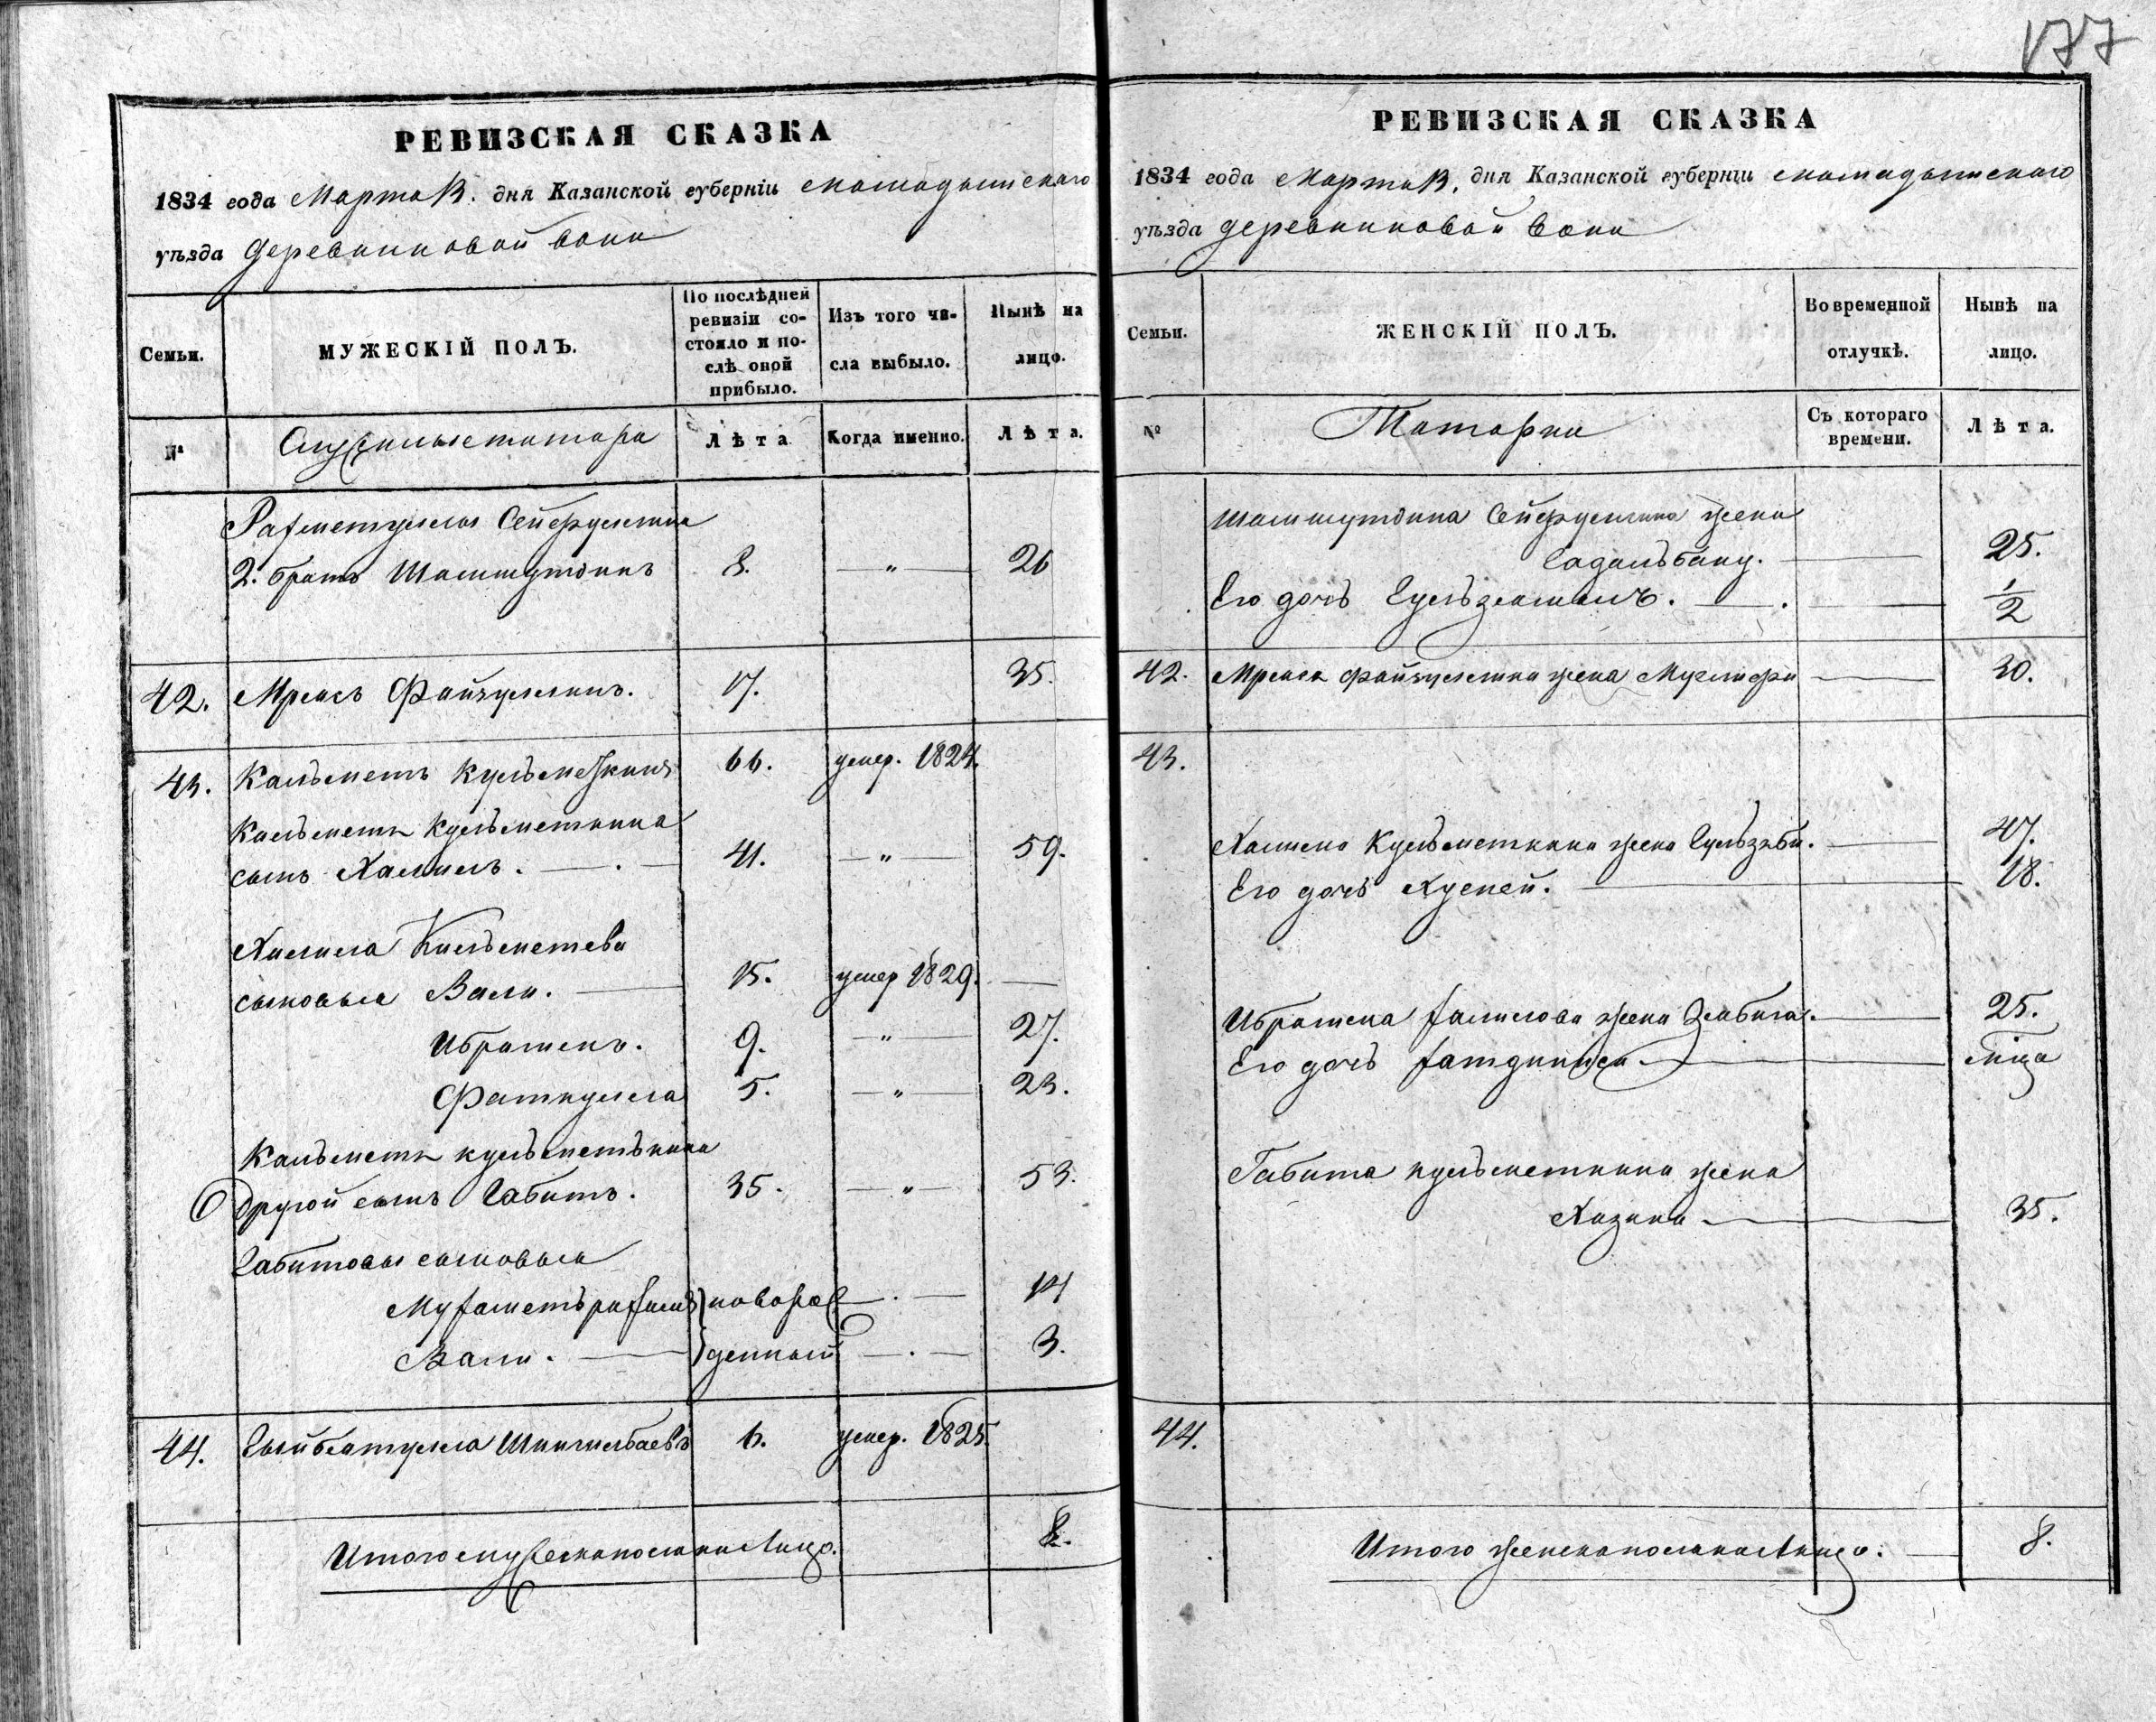 177
РЕВИЗСКАЯ СКАЗКА
1834 года Марта 13. дня Казанской губерніи Мамадышскаго
уѣзда деревни новой
Семьи.
МУЖЕСКІЙ ПОЛЪ.
По послѣдней ревизіи состояло и послѣ оной прибыло.
Изъ того числа выбыло.
Нынѣ на лицо.
№
Служилые татара
Лѣта
Когда именно.
Лѣта.
Рахметуллы Сейфуллина
2. братъ Шамшутдинъ 8. — " — 26
42. Мрясъ Файзуллинъ. 17. 35.
43. Кальметь Кульметкинъ 66. умер. 1824.
Кальметя Кульметкина
сынъ Халилъ. 41. — " — 59.
Халила Кильметева
сыновья Вали. 15. умер 1829. —
Ибрагимъ. 9. — " — 27.
Фаткулла 5. — " — 23.
Кальметя кульметькина
другой сынъ Габитъ. 35. — " — 53.
Габитовы сыновья
Мухаметьрахимъ } новорож 14
Вали. } денный 3.
44. Шингилбаевъ 6. умер. 1825.
Итого мужеска пола на лицо. 8.
РЕВИЗСКАЯ СКАЗКА
1834 года Марта 13. дня Казанской губерніи Мамадышскаго
уѣзда деревни новой
Семьи.
ЖЕНСКІЙ ПОЛЪ.
Во временной отлучкѣ.
Нынѣ на лицо.
№
Татарки
Съ котораго времени.
Лѣта.
Шамшутдина Сейфуллина жена
Бадальбану. 25.
Его дочь Гульзямаль. 1/2
42. Мряса Файзуллина жена 30.
43.
Халила Кульметкина жена Гульзяби. 47.
Его дочь 18.
Ибрагима Халилова жена Зябида. 25.
Его дочь мѣца
Габита кульметкина жена
Хазина 35.
44.
Итого женска пола на лицо. 8.